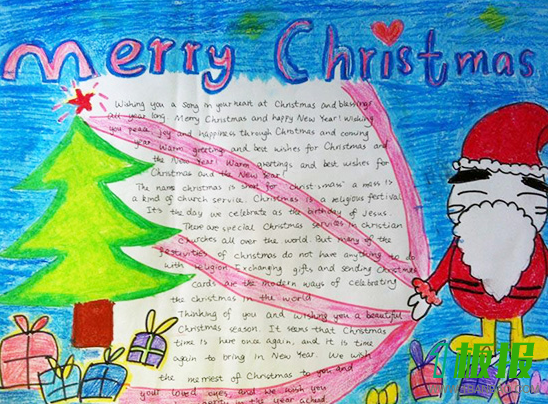 Merry Christmas
Wishing you a song in your heart at Christmas and blessings
all year long. Merry Christmas and happy New Year! Wishing
you peace, joy and happiness through Christmas and coming
year. Warm greetings and best wishes for Christmas and
the New Year! Warm greetings and best wishes for
Christmas and the New Year
The name christmas is short for "christ's mass" a mass is
a kind of church service. Christmas is a religious festival
It's the day we celebrate as the birthday of Jesus.
There are special Christmas services in christian
Churches all over the world. But many of the
festivities of christmas do not have anything to do
with religion Exchanging gifts and sending Christmas
Cards are the modern ways of celebrating
the christmas in the world
Thinking of you and wishing you a beautiful
Christmas season. It seems that Christmas
time is here once again, and it is time
again to bring in New Year. We wish
the merriest of Christmas to you and
your loved ones, and we wish you
in the year ahead
板报